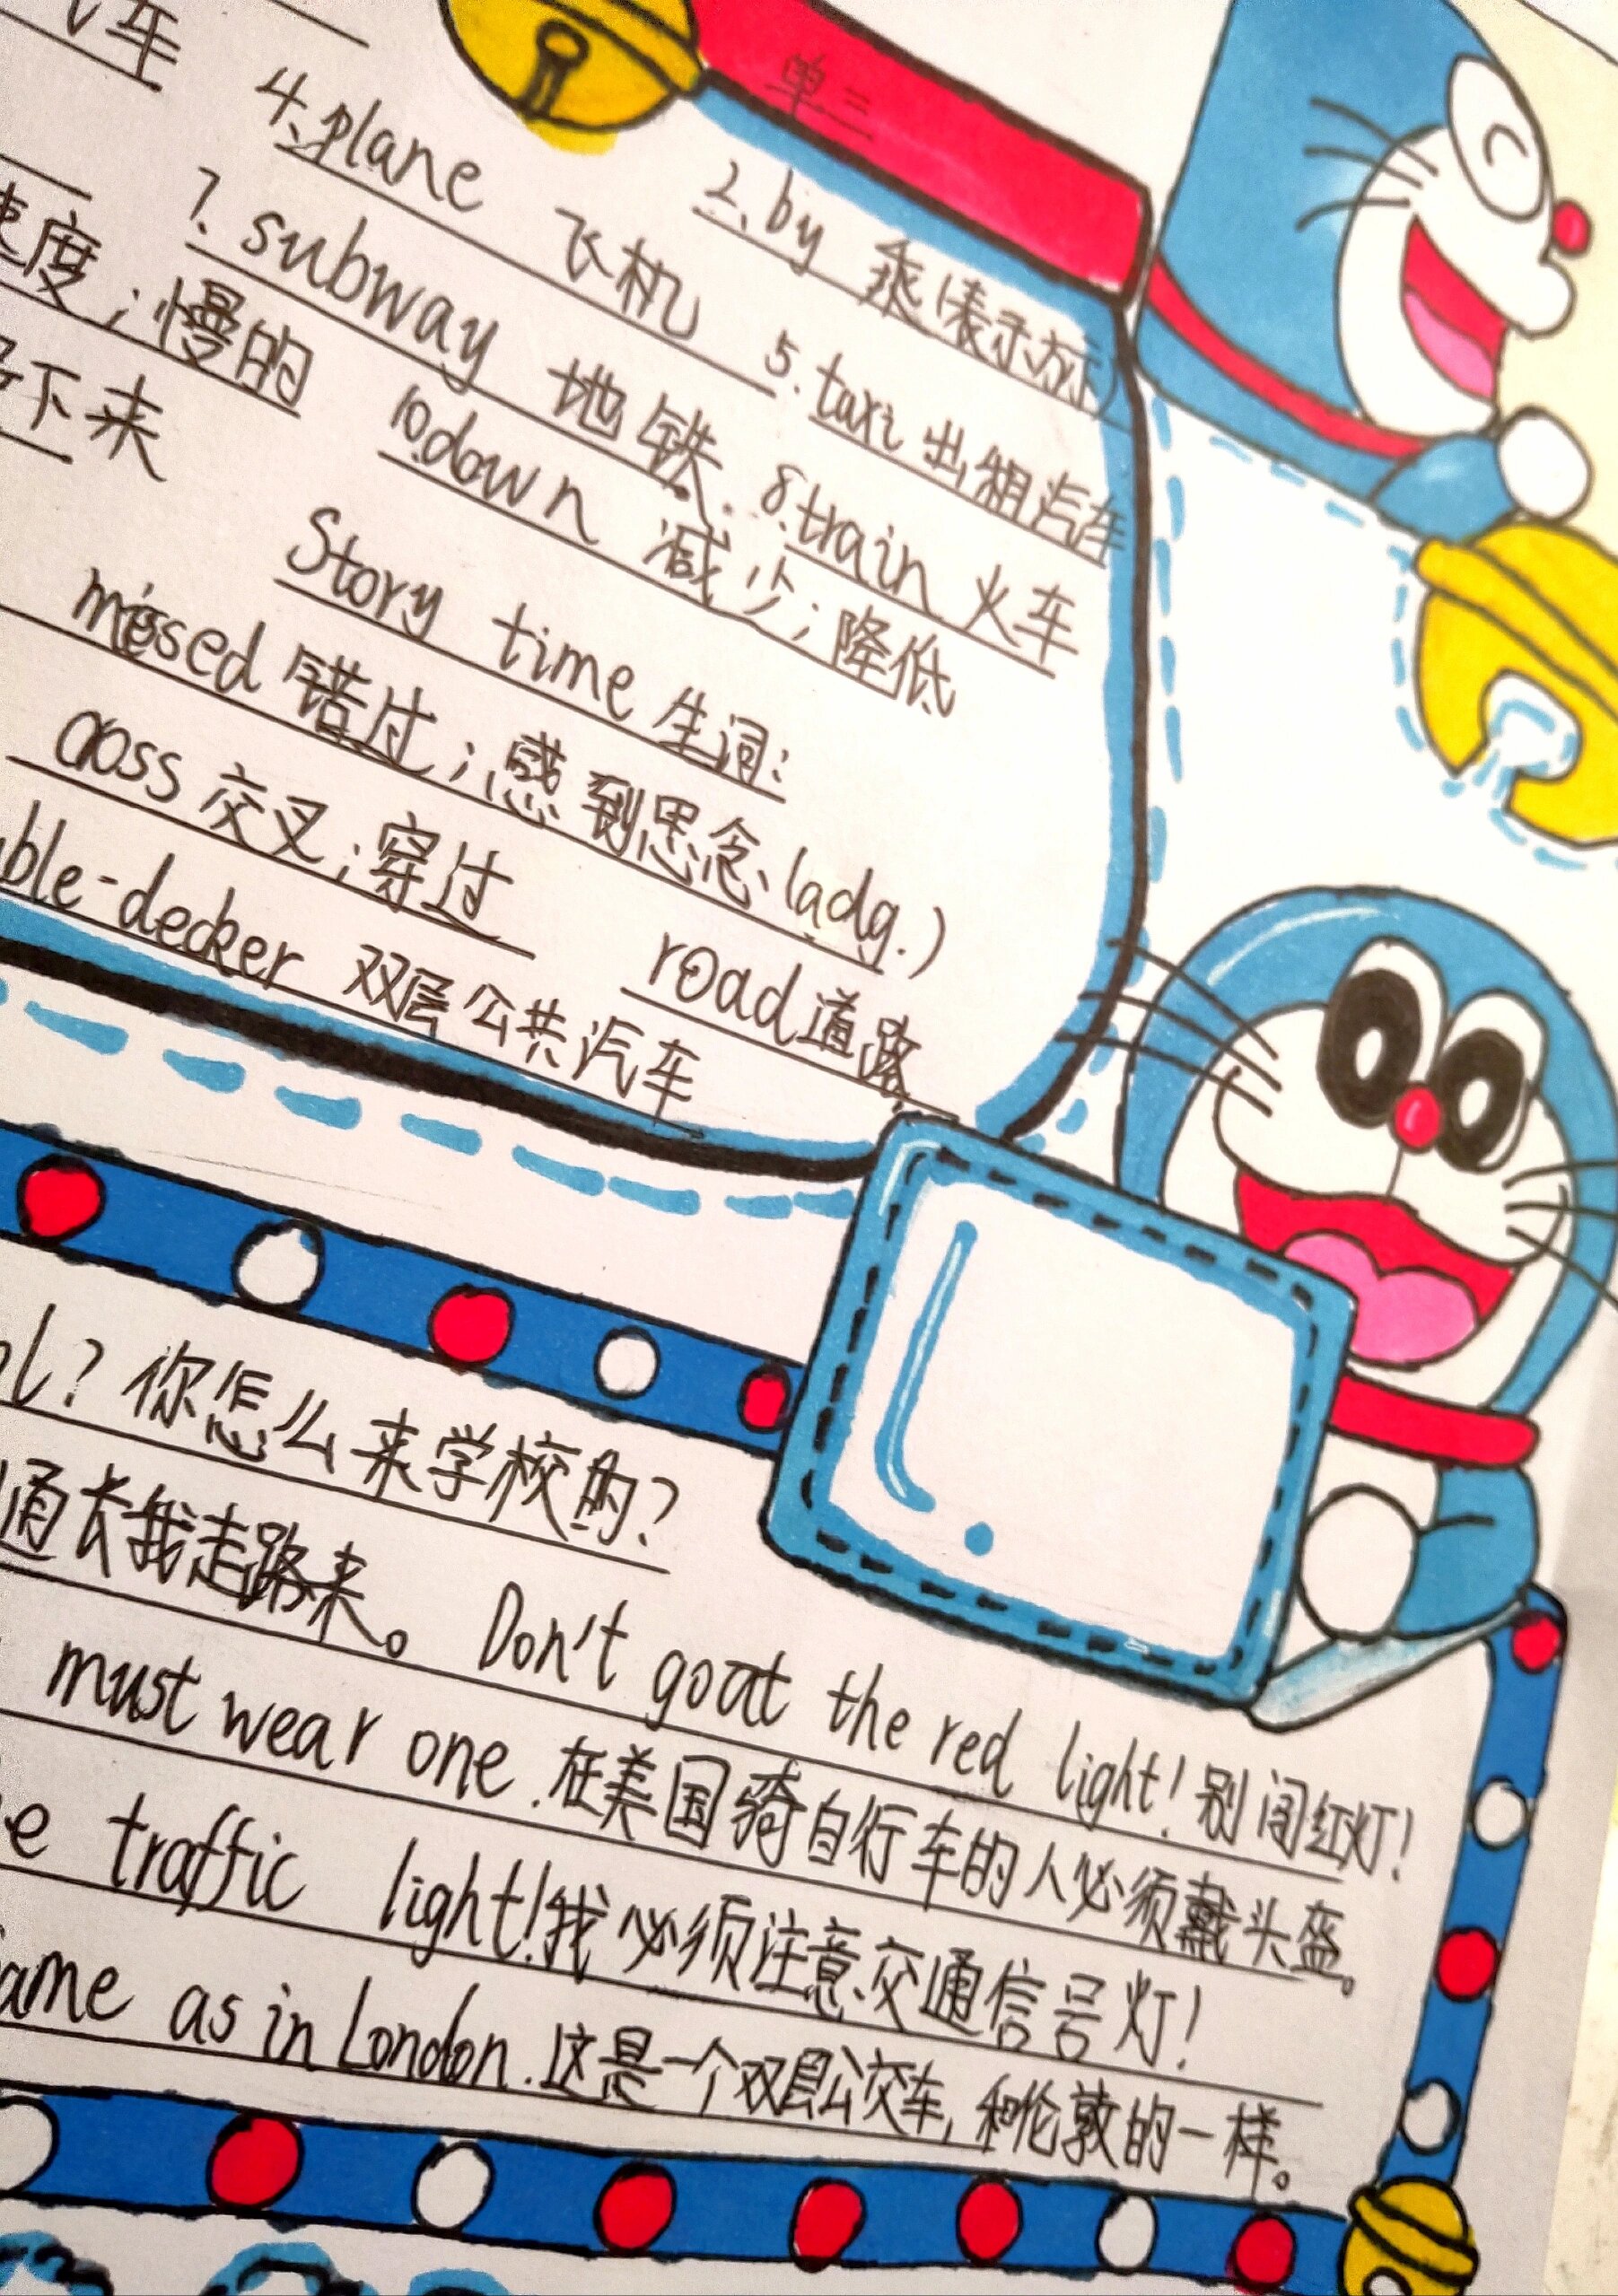 单三
汽车
4. plane 飞机
2. by 乘(表示方式)
速度；慢的
7. subway 地铁
5. taxi 出租汽车
下来
10. down 减少；降低
8. train 火车
Story time 生词：
missed 错过；感到思念 (adg.)
cross 交叉；穿过
road 道路
ble-decker 双层公共汽车
ol? 你怎么来学校的?
通长我走路来。 Don't go at the red light! 别闯红灯!
must wear one. 在美国骑自行车的人必须戴头盔。
e traffic light! 我必须注意交通信号灯!
ame as in London. 这是一个双层公交车, 和伦敦的一样。